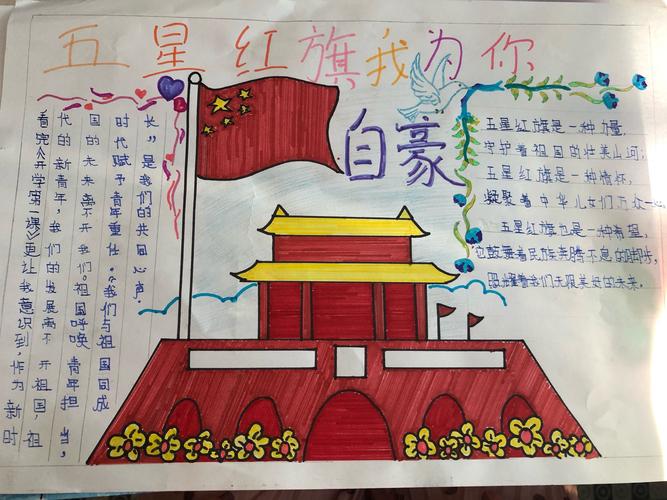 五星红旗我为你
自豪
看完《开学第一课》更让我意识到,作为新时
代的新青年,我们的发展离不开祖国,祖
国的未来离不开我们。祖国呼唤青年担当,
时代赋予青年重任。“我们与祖国同成
长”是我们的共同心声.
五星红旗是一种力量
守护着祖国的壮美山河;
五星红旗是一种情怀,
凝聚着中华儿女们万众一心
五星红旗也是一种希望,
也鼓舞着民族奔腾不息的脚步,
照耀着我们无限美好的未来.